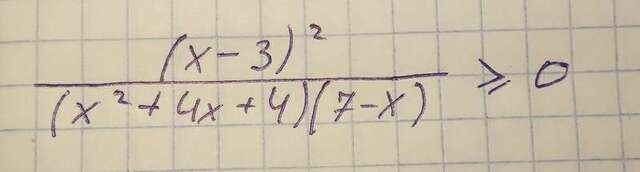 (x-3)²
(x²+4x+4)(7-x) ≥ 0